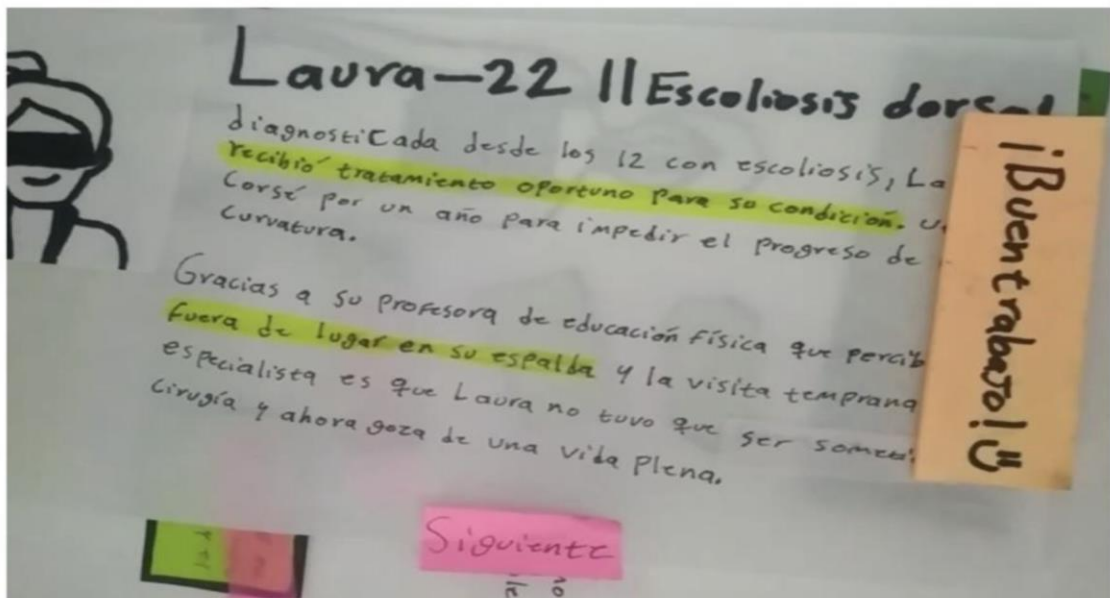 Laura-22 || Escoliosis dorsal
diagnosticada desde los 12 con escoliosis, La
recibió tratamiento oportuno para su condición. U
Corsé por un año para impedir el progreso de
Curvatura.
Gracias a su profesora de educación física que percib
fuera de lugar en su espalda y la visita temprana
especialista es que Laura no tuvo que ser somet
Cirugía y ahora goza de una vida plena.
¡Buen trabajo!
Siguiente